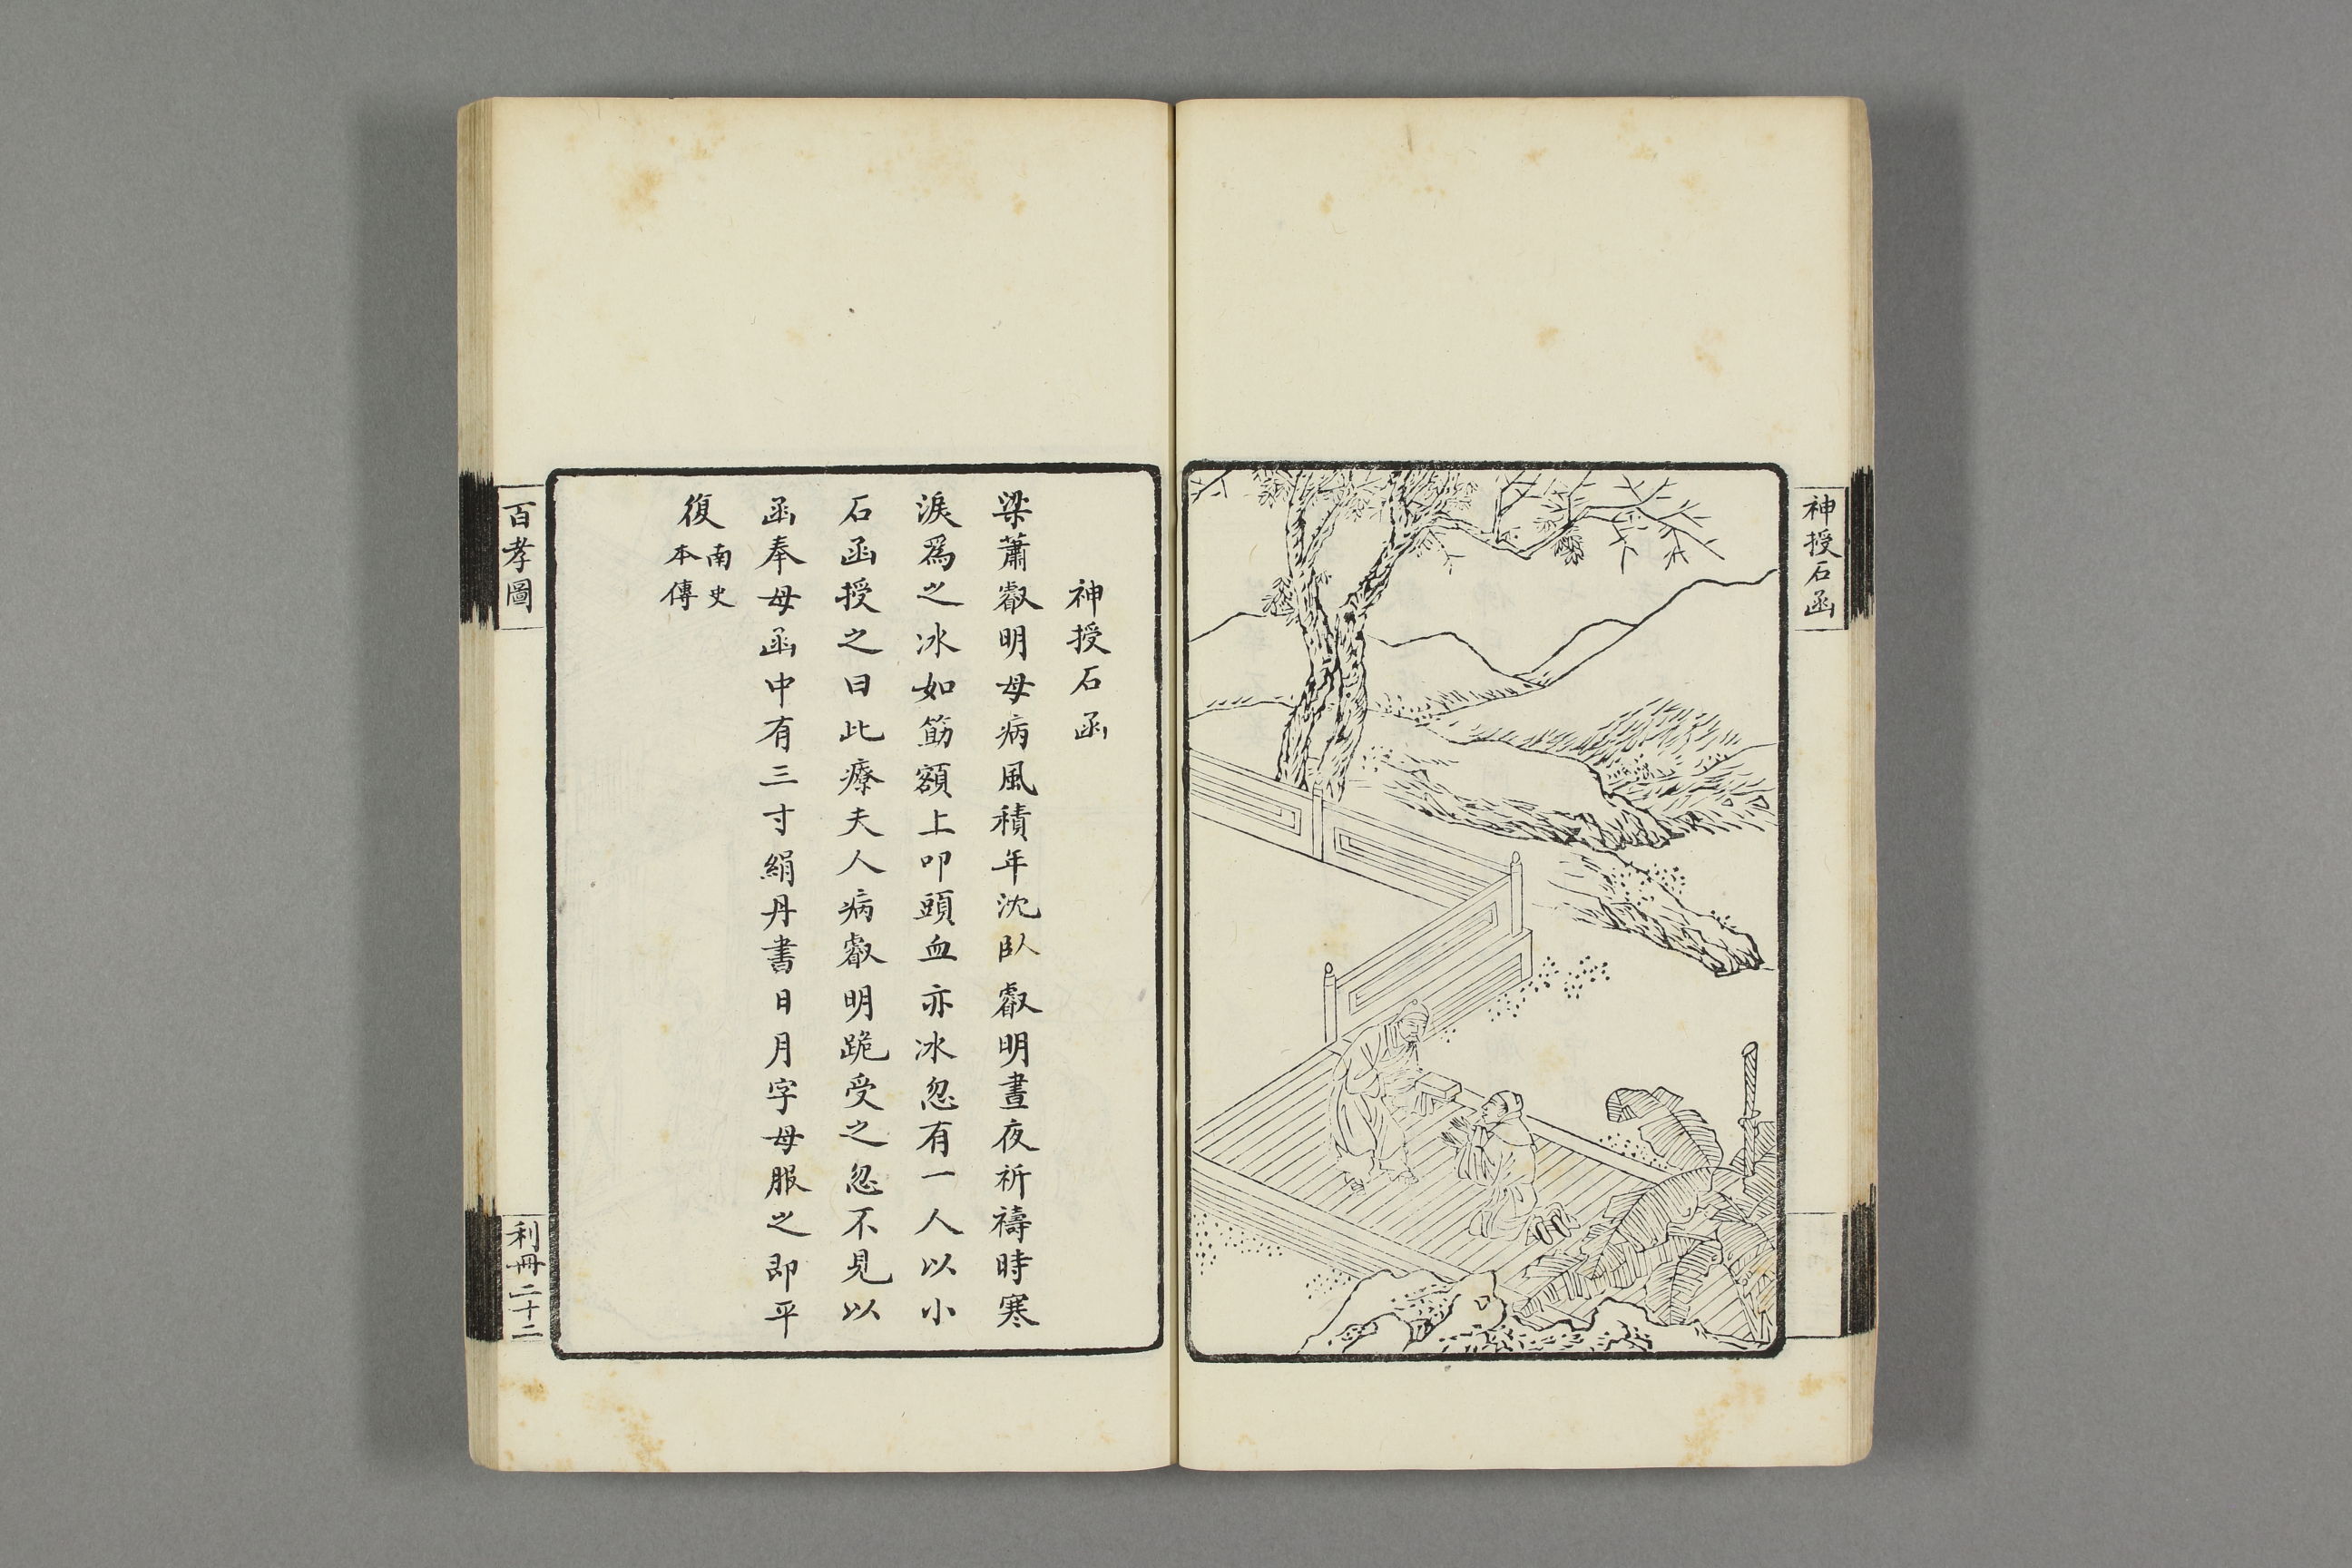 神授石函
神授石函
梁蕭叡明母病風積年沈臥叡明晝夜祈禱時寒
淚爲之冰如筯額上叩頭血亦冰忽有一人以小
石函授之曰此療夫人病叡明跪受之忽不見以
函奉母函中有三寸絹丹書日月字母服之即平
復南史
本傳
百孝圖
利冊二十二